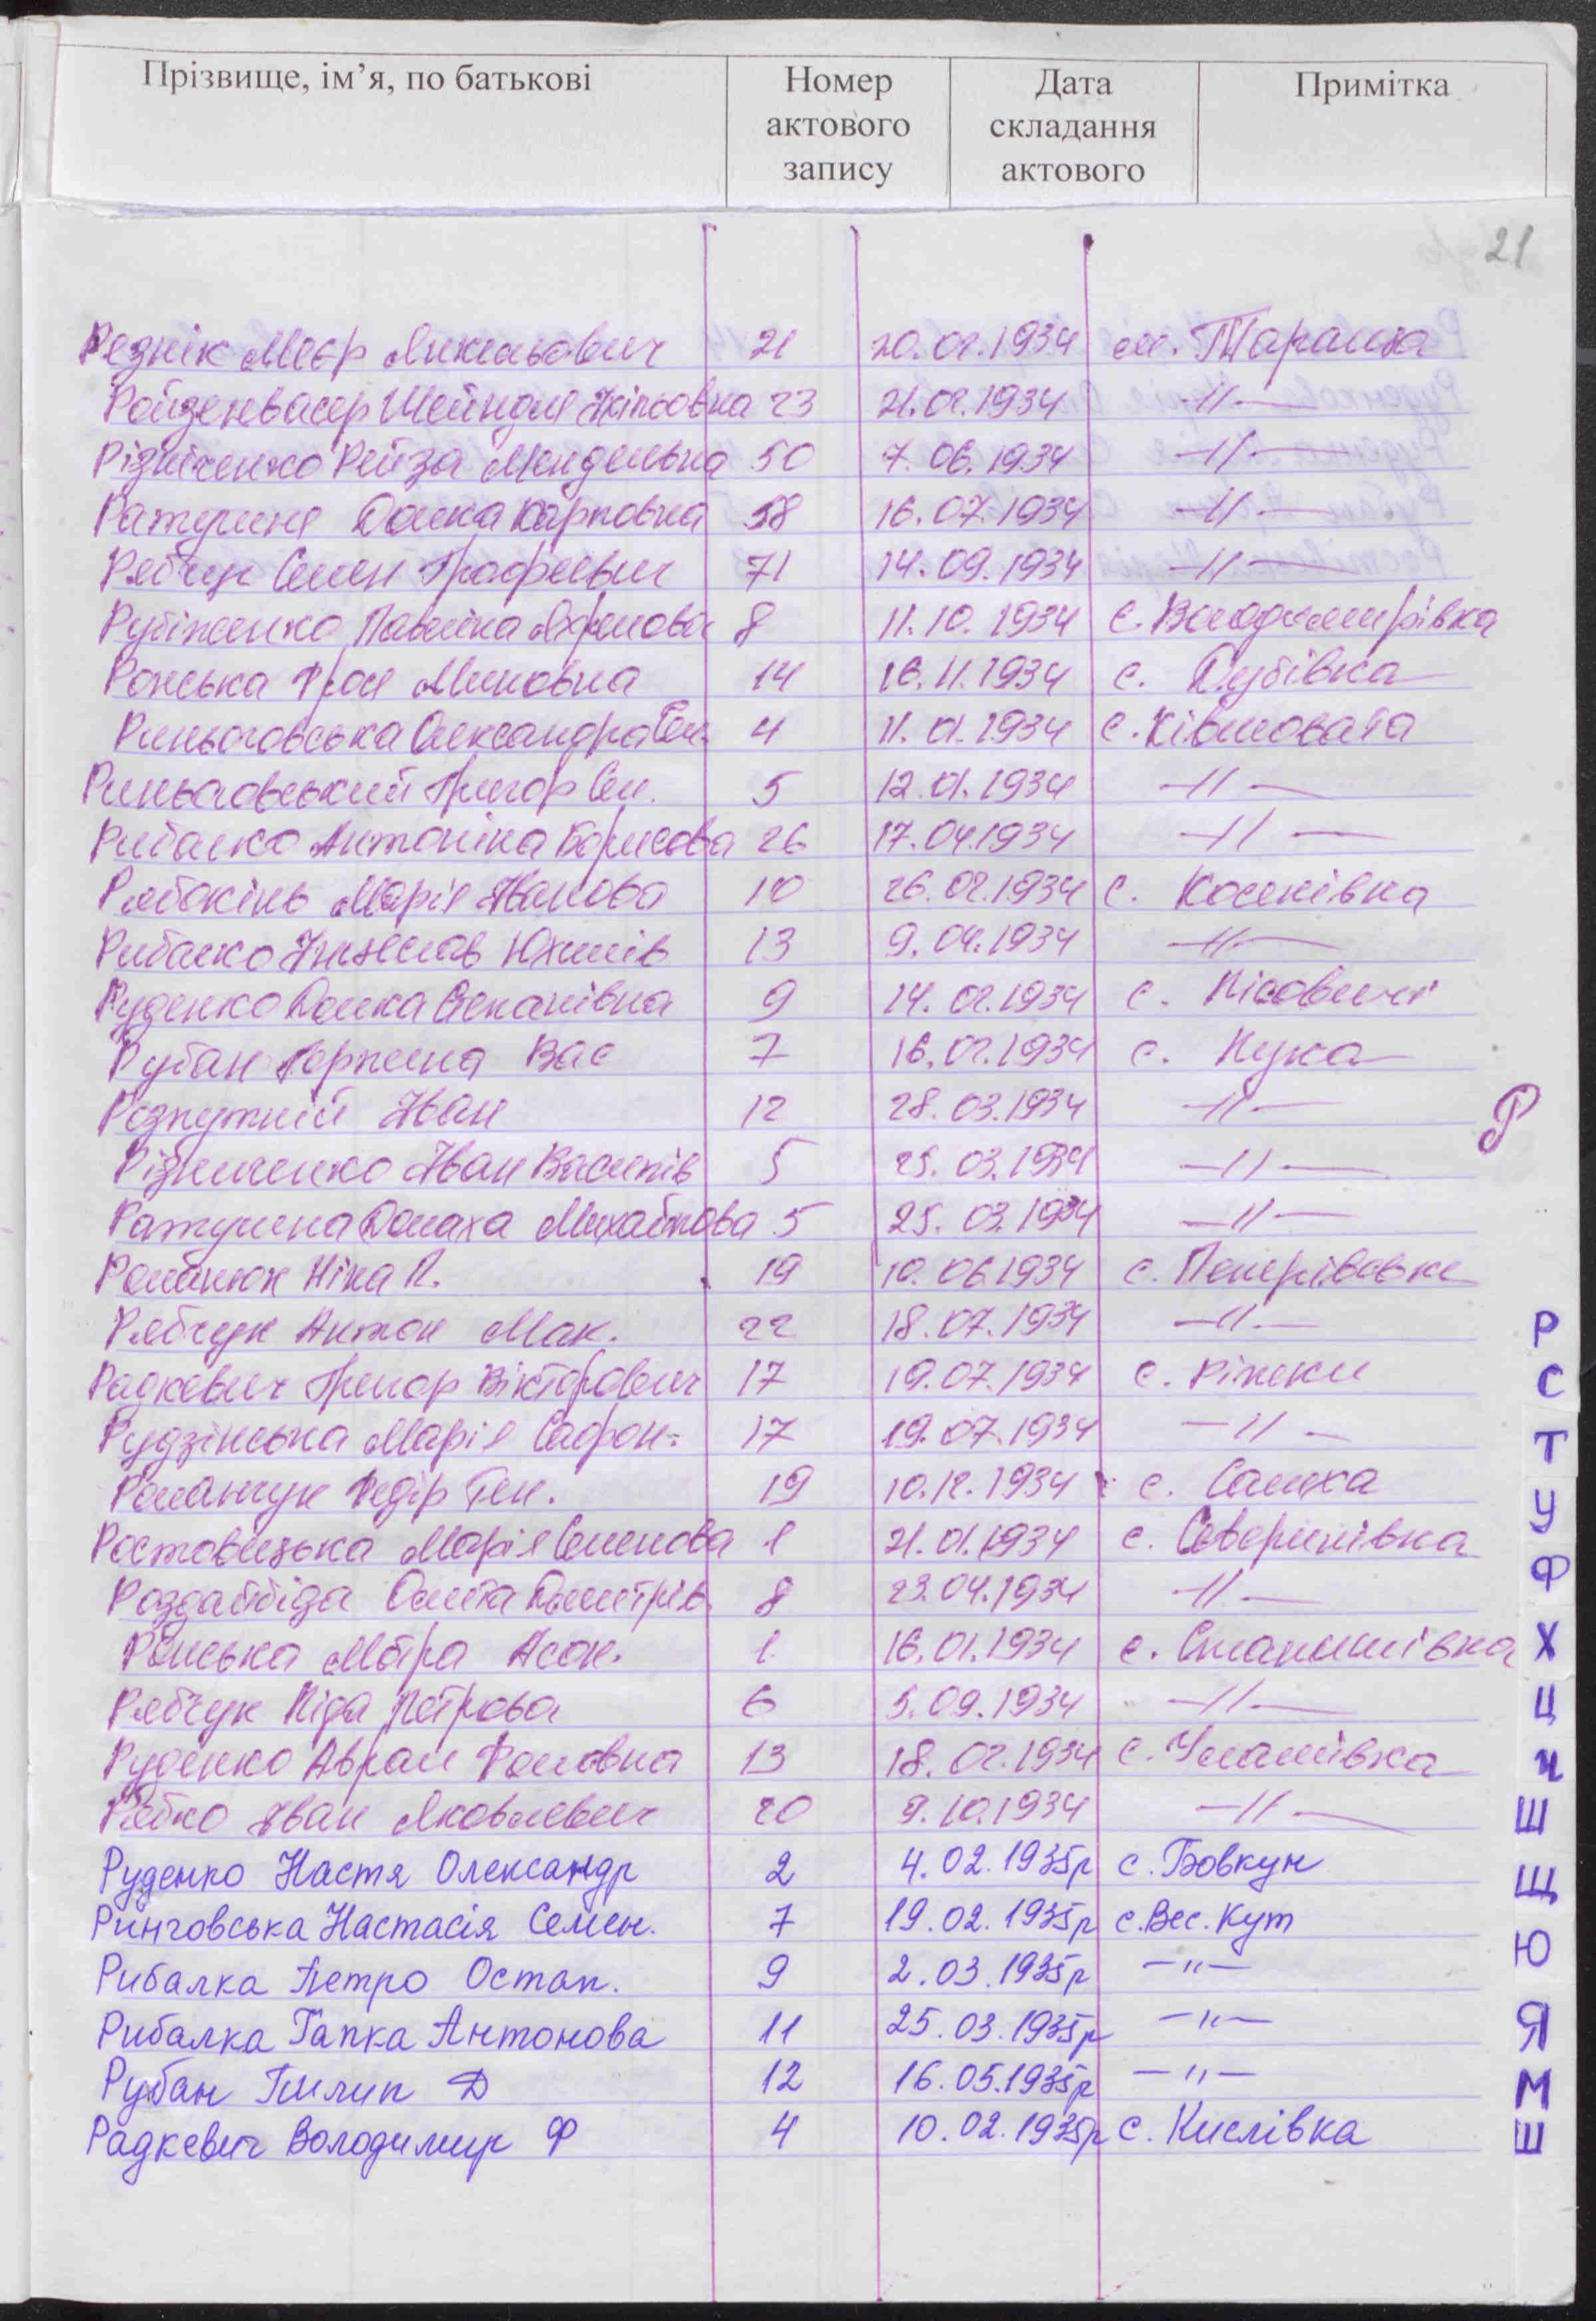 Прізвище, ім’я, по батькові Номер актового запису Дата складання актового Примітка
21
Реднік Меєр 21 20.02.1934 м. Тараща
Ройзенвасер Шейндля 23 21.02.1934 —//—
Різніченко Рейза Мендельна 50 7.06.1934 —//—
Ратушня Домка Карповна 58 16.07.1934 —//—
Рябчук Семен 71 14.09.1934 —//—
Рубіженко Павліна 8 11.10.1934 с. Володимирівка
Ронська Фрос Миновна 14 16.11.1934 с. Дубівка
Риньговська Олександра 4 11.01.1934 с. Ківшовата
Риньговський Григор Сем. 5 12.01.1934 —//—
Рибалко Антоніна Борисова 26 17.04.1934 —//—
Рябокінь Марія Іванова 10 26.02.1934 с. Косяківка
Рибалко Юхимів 13 9.04.1934 —//—
Руденко Домка Степанівна 9 14.02.1934 с. Лісовичі
Рубан Терпина Вас 7 16.02.1934 с. Лука
Розпутній Іван 12 28.03.1934 —//—
Різниченко Іван Василів 5 25.03.1934 —//—
Ратушна Домаха Михайлова 5 25.03.1934 —//—
Романюк Ніна П. 19 10.06.1934 с.
Рябчук Антон Мак. 22 18.07.1934 —//—
Радкевич Григор Вікторович 17 19.07.1934 с. Ріжки
Рудзінська Марія Сафон. 17 19.07.1934 —//—
Романчук Федір 19 10.12.1934 с. Салиха
Ростовицька Марія Семенова 1 21.01.1934 с. Северинівка
Роздайбіда Дмитрів. 8 23.04.1934 —//—
Ронська Мотра 1 16.01.1934 с. Станишівка
Рябчук Ліда Петрова 6 5.09.1934 —//—
Руденко Аврам 13 18.02.1934 с. Улашівка
Рябко Іван Яковлевич 20 9.10.1934 —//—
Руденко Настя Олександр 2 4.02.1935р с. Бовкун
Ринговська Настасія Семен. 7 19.02.1935р с. Вес. Кут
Рибалка Петро Остап. 9 2.03.1935р —"—
Рибалка Гапка Антонова 11 25.03.1935р —"—
Рубан Пилип Д 12 16.05.1935р —"—
Радкевич Володимир Ф 4 10.02.1935р с. Кислівка
Р
Р
С
Т
У
Ф
Х
Ц
Ч
Ш
Щ
Ю
Я
М
Ш